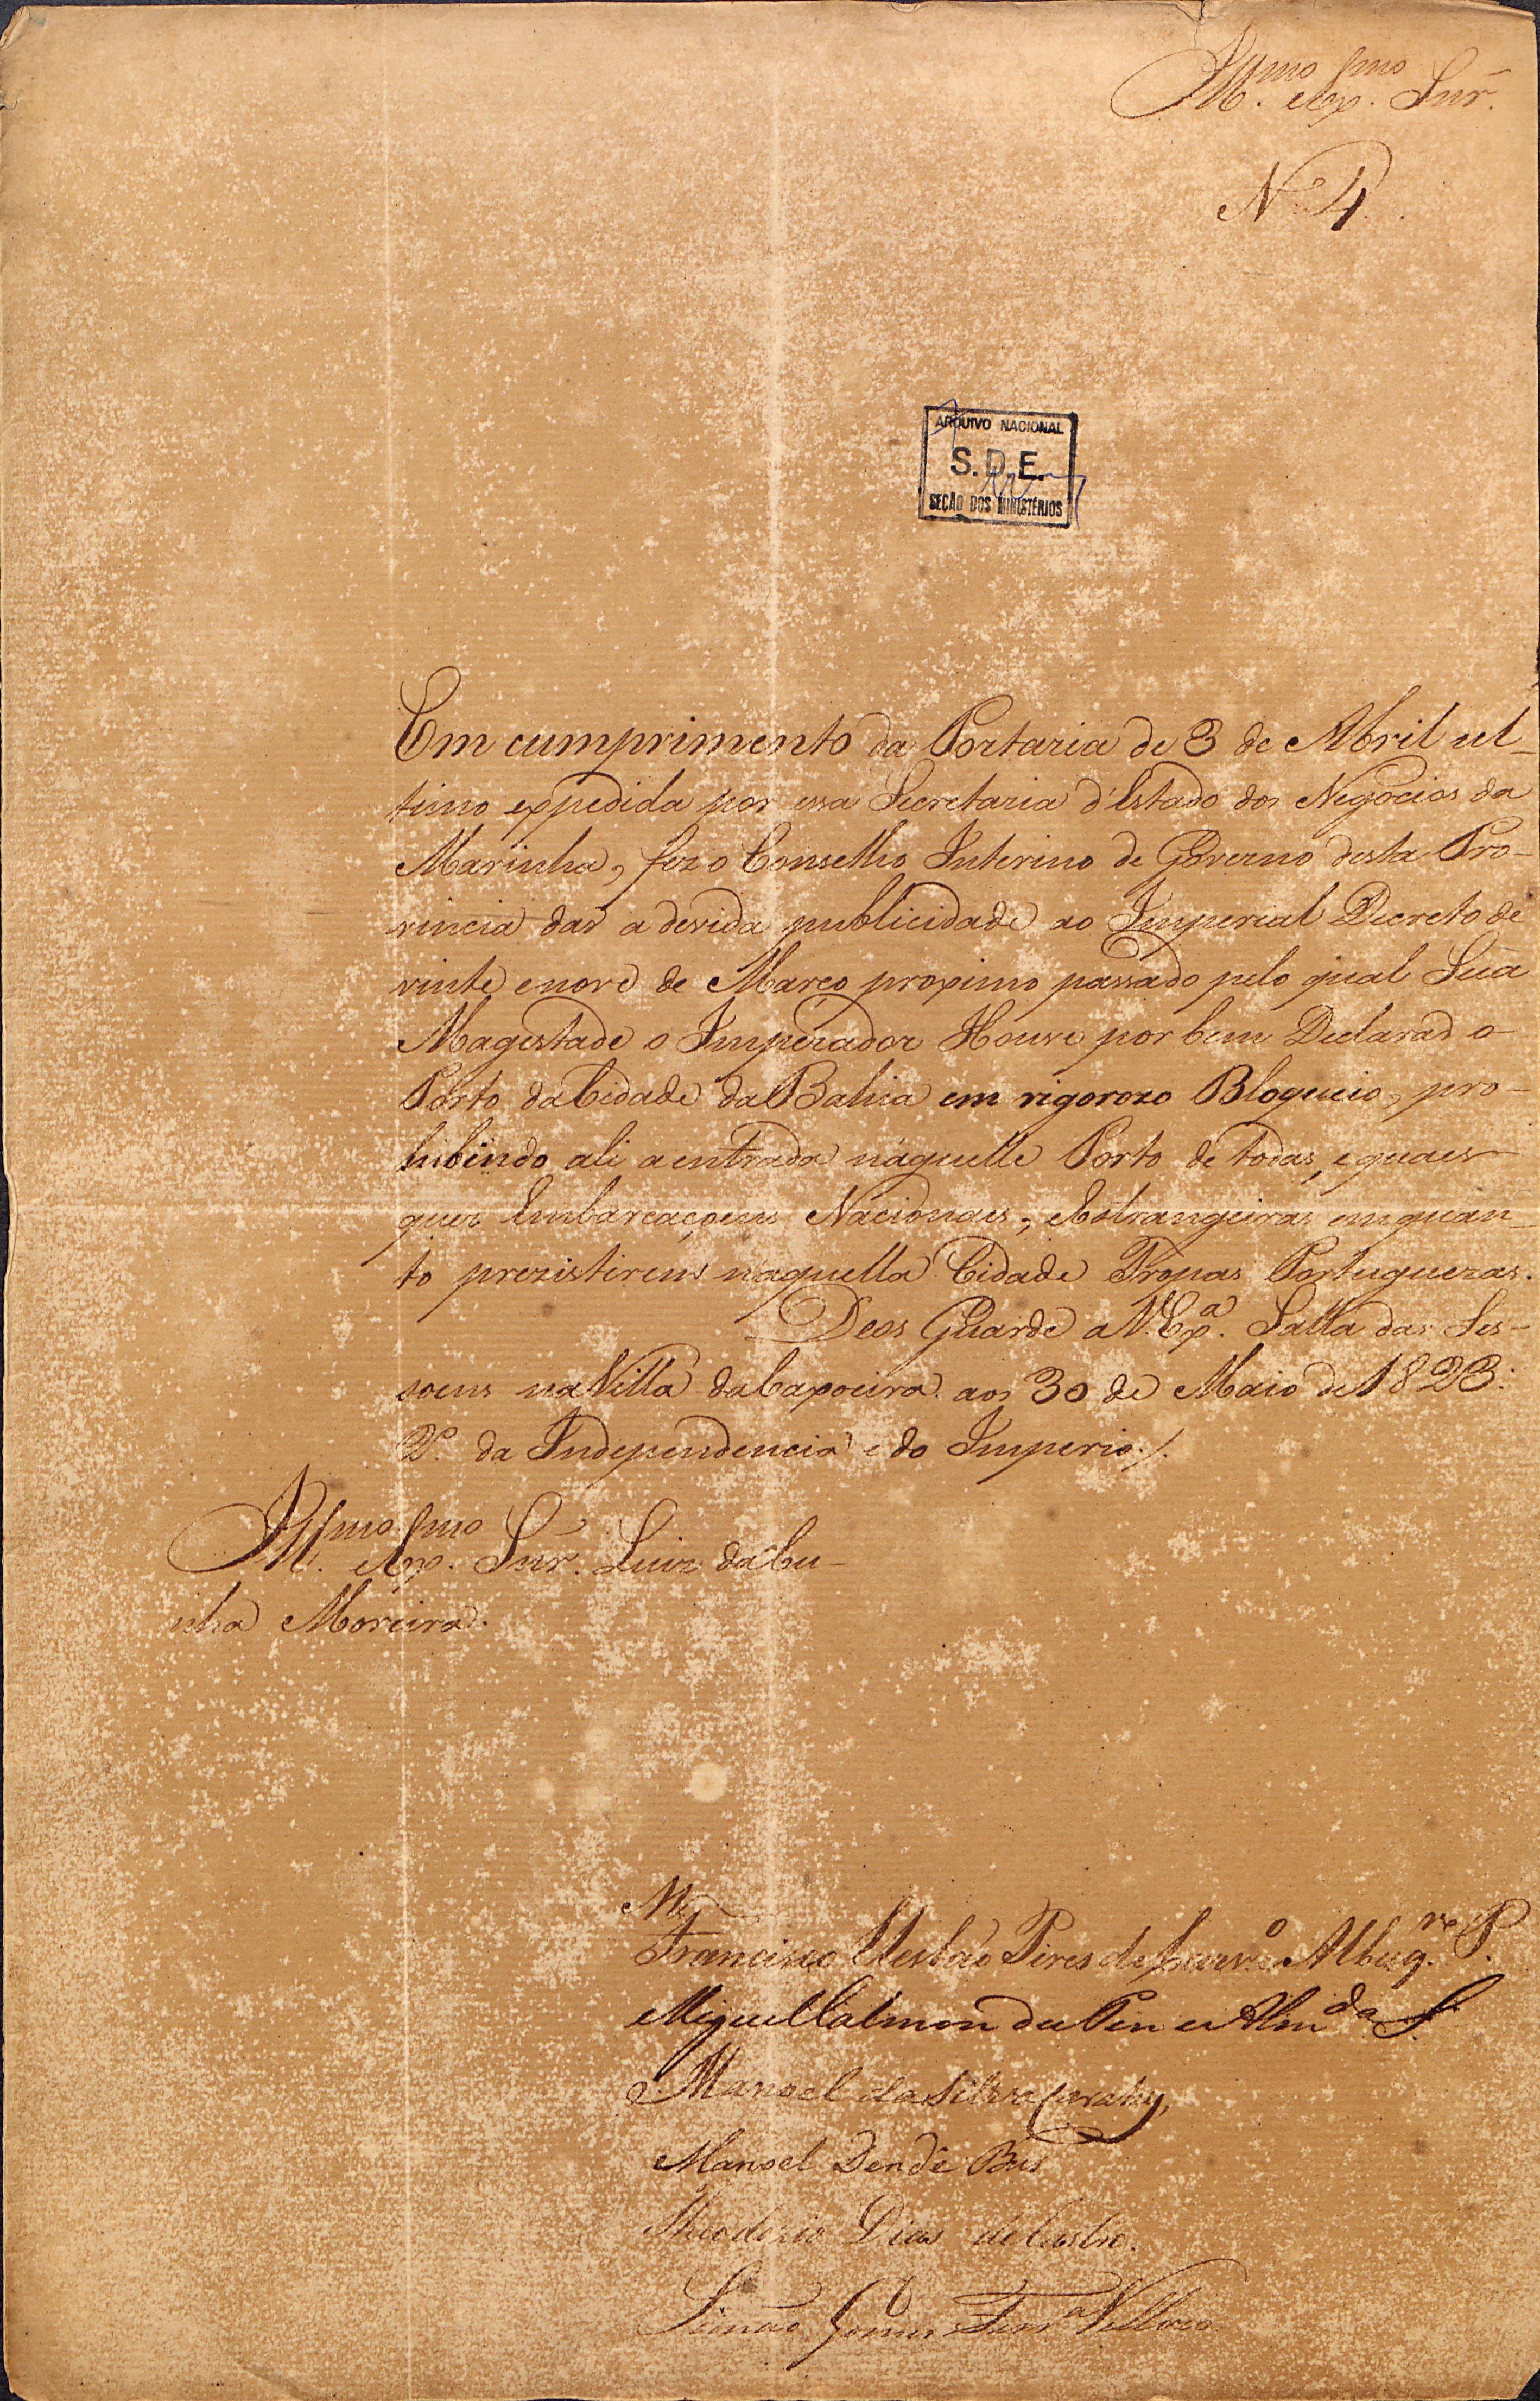 Ill.mo Ex.mo Snr.
N. 4.
ARQUIVO NACIONAL
S.D.E.
SEÇÃO DOS MINISTÉRIOS
Em cumprimento da Portaria de 3 de Abril ul-
timo expedida por essa Secretaria d'Estado dos Negocios da
Marinha, fez o Conselho Interino de Governo desta Pro-
vincia dar a devida publicidade ao Imperial Decreto de
vinte e nove de Março proximo passado pelo qual Sua
Magestade o Imperador Houve por bem Declarar o
Porto da Cidade da Bahia em rigorozo Bloqueio, pro-
hibindo ali a entrada náquelle Porto de todas, e quaes
quer Embarcaçoens Nacionaes, e Estrangeiras em quan-
to prezistirem naquella Cidade Tropas Portuguezas.
Deos Guarde a V. Ex.a Salla das Ses-
soens na Villa da Caxoeira aos 30 de Maio de 1823:
2º da Independencia e do Imperio./.
Ill.mo Ex.mo Snr. Luiz da Cu-
nha Moreira.
Francisco Elesbão Pires de Carv.o e Albuq.re P.
Miguel Calmon du Pin e Alm.da S.
Manoel da Silva Caraby
Manoel Dendê Bus
Theodozio Dias de Castro.
Simão Gomes Ferr.a Vellozo